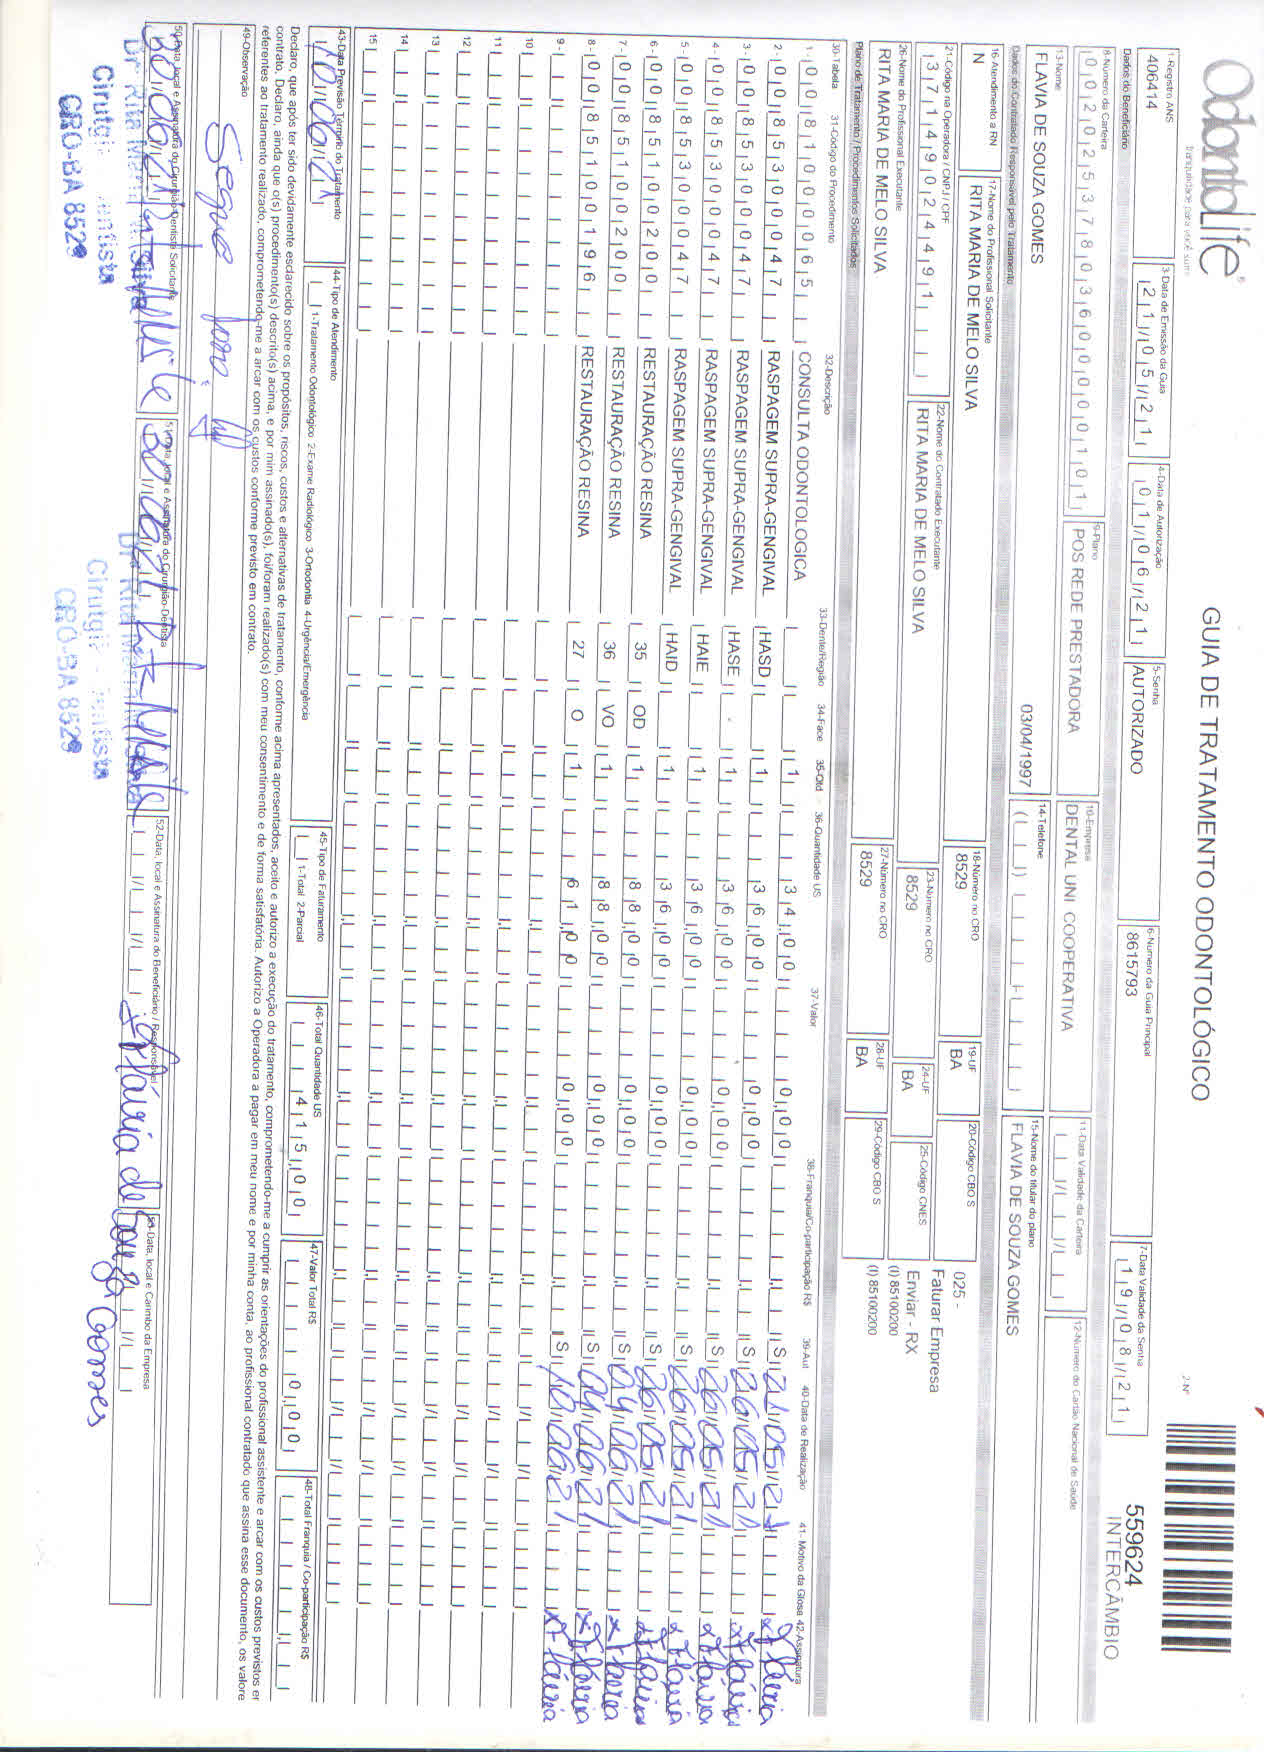 OdontoLife®
tranquilidade para você sorrir
GUIA DE TRATAMENTO ODONTOLÓGICO
2-Nº
559624
INTERCÂMBIO
1-Registro ANS
406414
3-Data de Emissão da Guia
21/05/21
4-Data de Autorização
01/06/21
5-Senha
AUTORIZADO
6-Número da Guia Principal
8615793
7-Data Validade da Senha
19/08/21
Dados do Beneficiário
8-Número da Carteira
00202537803600000101
9-Plano
POS REDE PRESTADORA
10-Empresa
DENTAL UNI COOPERATIVA
11-Data Validade da Carteira
12-Número do Cartão Nacional de Saúde
13-Nome
FLAVIA DE SOUZA GOMES
03/04/1997
14-Telefone
15-Nome do titular do plano
FLAVIA DE SOUZA GOMES
Dados do Contratado Responsável pelo Tratamento
16-Atendimento a RN
N
17-Nome do Profissional Solicitante
RITA MARIA DE MELO SILVA
18-Número no CRO
8529
19-UF
BA
20-Código CBO S
025 -
Faturar Empresa
Enviar - RX
(I) 85100200
(I) 85100200
21-Código na Operadora / CNPJ / CPF
37149024491
22-Nome do Contratado Executante
RITA MARIA DE MELO SILVA
23-Número no CRO
8529
24-UF
BA
25-Código CNES
26-Nome do Profissional Executante
RITA MARIA DE MELO SILVA
27-Número no CRO
8529
28-UF
BA
29-Código CBO S
Plano de Tratamento / Procedimentos Solicitados
30-Tabela 31-Código do Procedimento 32-Descrição 33-Dente/Região 34-Face 35-Qtd 36-Quantidade US 37-Valor 38-Franquia/Co-participação R$ 39-Aut 40-Data de Realização 41- Motivo da Glosa 42-Assinatura
1 - 00 81000065 CONSULTA ODONTOLOGICA 1 34,00 0,00 S 21/05/21 x Flávia
2 - 00 85300047 RASPAGEM SUPRA-GENGIVAL HASD 1 36,00 0,00 S 26/05/21 x Flávia
3 - 00 85300047 RASPAGEM SUPRA-GENGIVAL HASE 1 36,00 0,00 S 26/05/21 x Flávia
4 - 00 85300047 RASPAGEM SUPRA-GENGIVAL HAIE 1 36,00 0,00 S 26/05/21 x Flávia
5 - 00 85300047 RASPAGEM SUPRA-GENGIVAL HAID 1 36,00 0,00 S 26/05/21 x Flávia
6 - 00 85100200 RESTAURAÇÃO RESINA 35 OD 1 88,00 0,00 S 04/06/21 x Flávia
7 - 00 85100200 RESTAURAÇÃO RESINA 36 VO 1 88,00 0,00 S 04/06/21 x Flávia
8 - 00 85100196 RESTAURAÇÃO RESINA 27 O 1 61,00 0,00 S 10/06/21 x Flávia
9 -
10
11
12
13
14
15
43-Data Previsão Término do Tratamento
10/06/21
44-Tipo de Atendimento
1-Tratamento Odontológico 2-Exame Radiológico 3-Ortodontia 4-Urgência/Emergência
45-Tipo de Faturamento
1-Total 2-Parcial
46-Total Quantidade US
415,00
47-Valor Total R$
0,00
48-Total Franquia / Co-participação R$
Declaro, que após ter sido devidamente esclarecido sobre os propósitos, riscos, custos e alternativas de tratamento, conforme acima apresentados, aceito e autorizo a execução do tratamento, comprometendo-me a cumprir as orientações do profissional assistente e arcar com os custos previstos em
contrato. Declaro, ainda que o(s) procedimento(s) descrito(s) acima, e por mim assinado(s), foi/foram realizado(s) com meu consentimento e de forma satisfatória. Autorizo a Operadora a pagar em meu nome e por minha conta, ao profissional contratado que assina esse documento, os valore
referentes ao tratamento realizado, comprometendo-me a arcar com os custos conforme previsto em contrato.
49-Observação
Segue
50-Data, local e Assinatura do Cirurgião-Dentista Solicitante
51-Data, local e Assinatura do Cirurgião-Dentista
52-Data, local e Assinatura do Beneficiário / Responsável
x Flávia de Souza Gomes
53-Data, local e Carimbo da Empresa
CRO-BA 8529
CRO-BA 8529